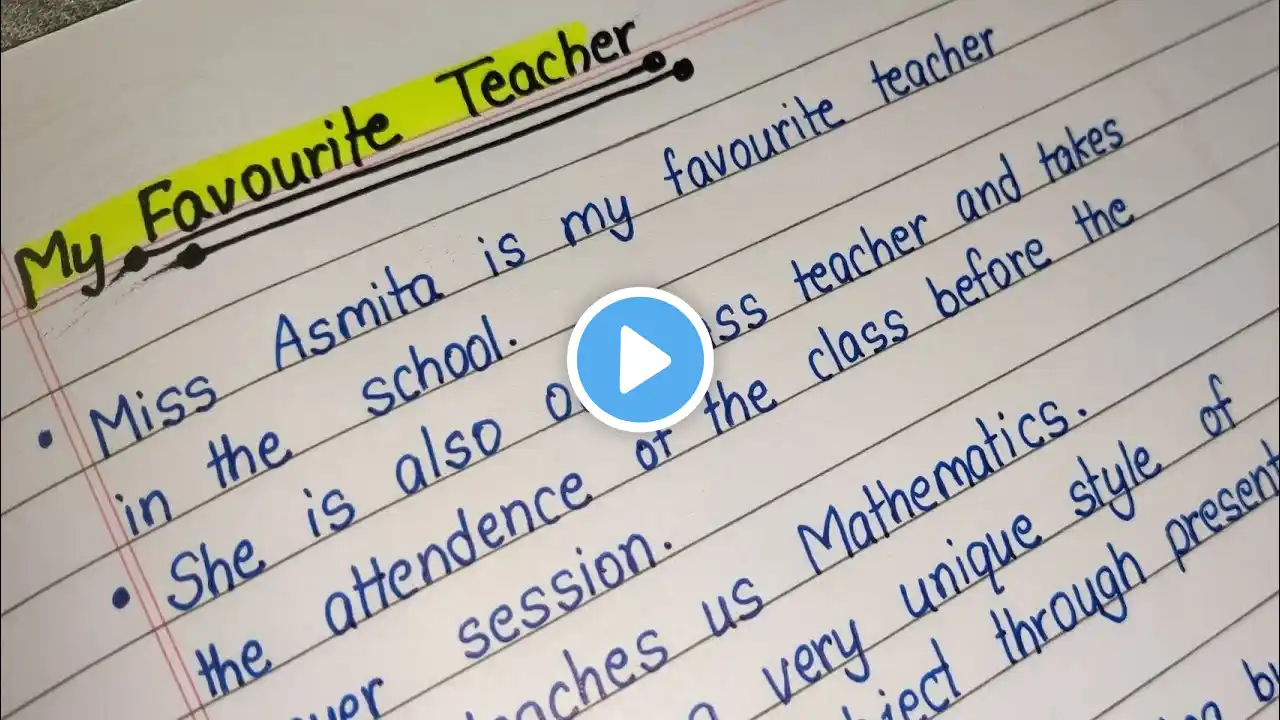 My Favourite Teacher
• Miss Asmita is my favourite teacher
in the school.
• She is also teacher and takes
the attendence of the class before the
session.
us Mathematics.
very unique style of
through